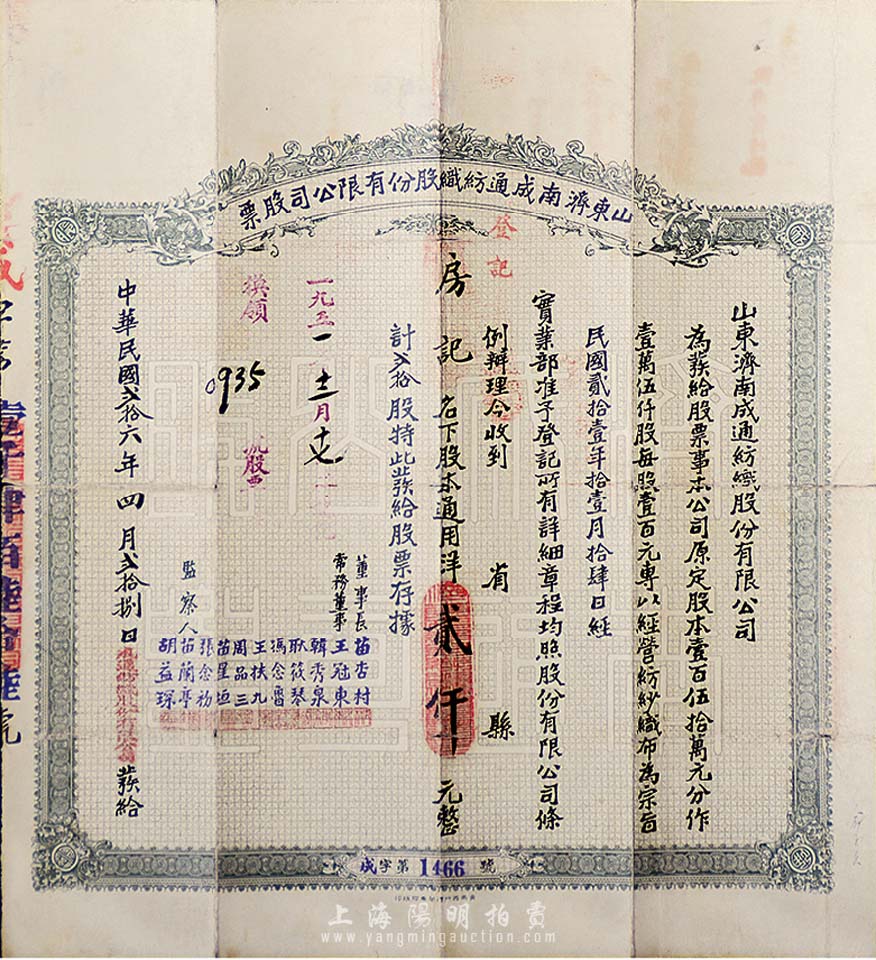 山東濟南成通紡織股份有限公司股票
山東濟南成通紡織股份有限公司
為發給股票事本公司原定股本壹百伍拾萬元分作
壹萬伍仟股每股壹百元專以經營紡紗織布為宗旨
民國貳拾壹年拾壹月拾肆日經
實業部准予登記所有詳細章程均照股份有限公司條
例辦理今收到 省 縣
登記
房記名下股本通用洋貳仟元整
計貳拾股特此發給股票存據
董事長 苗杏村
常務董事 王冠東
韓秀泉
耿筱琴
馮念魯
王扶九
周品三
苗星垣
監察人 張念礽
苗蘭亭
胡益琛
一九五一 十二月十七
換領
0935
號股票
中華民國貳拾六年四月貳拾捌日 發給
成字第1466號
成字第壹仟肆百陸拾陸號
上海陽明拍賣
www.yangmingauction.com